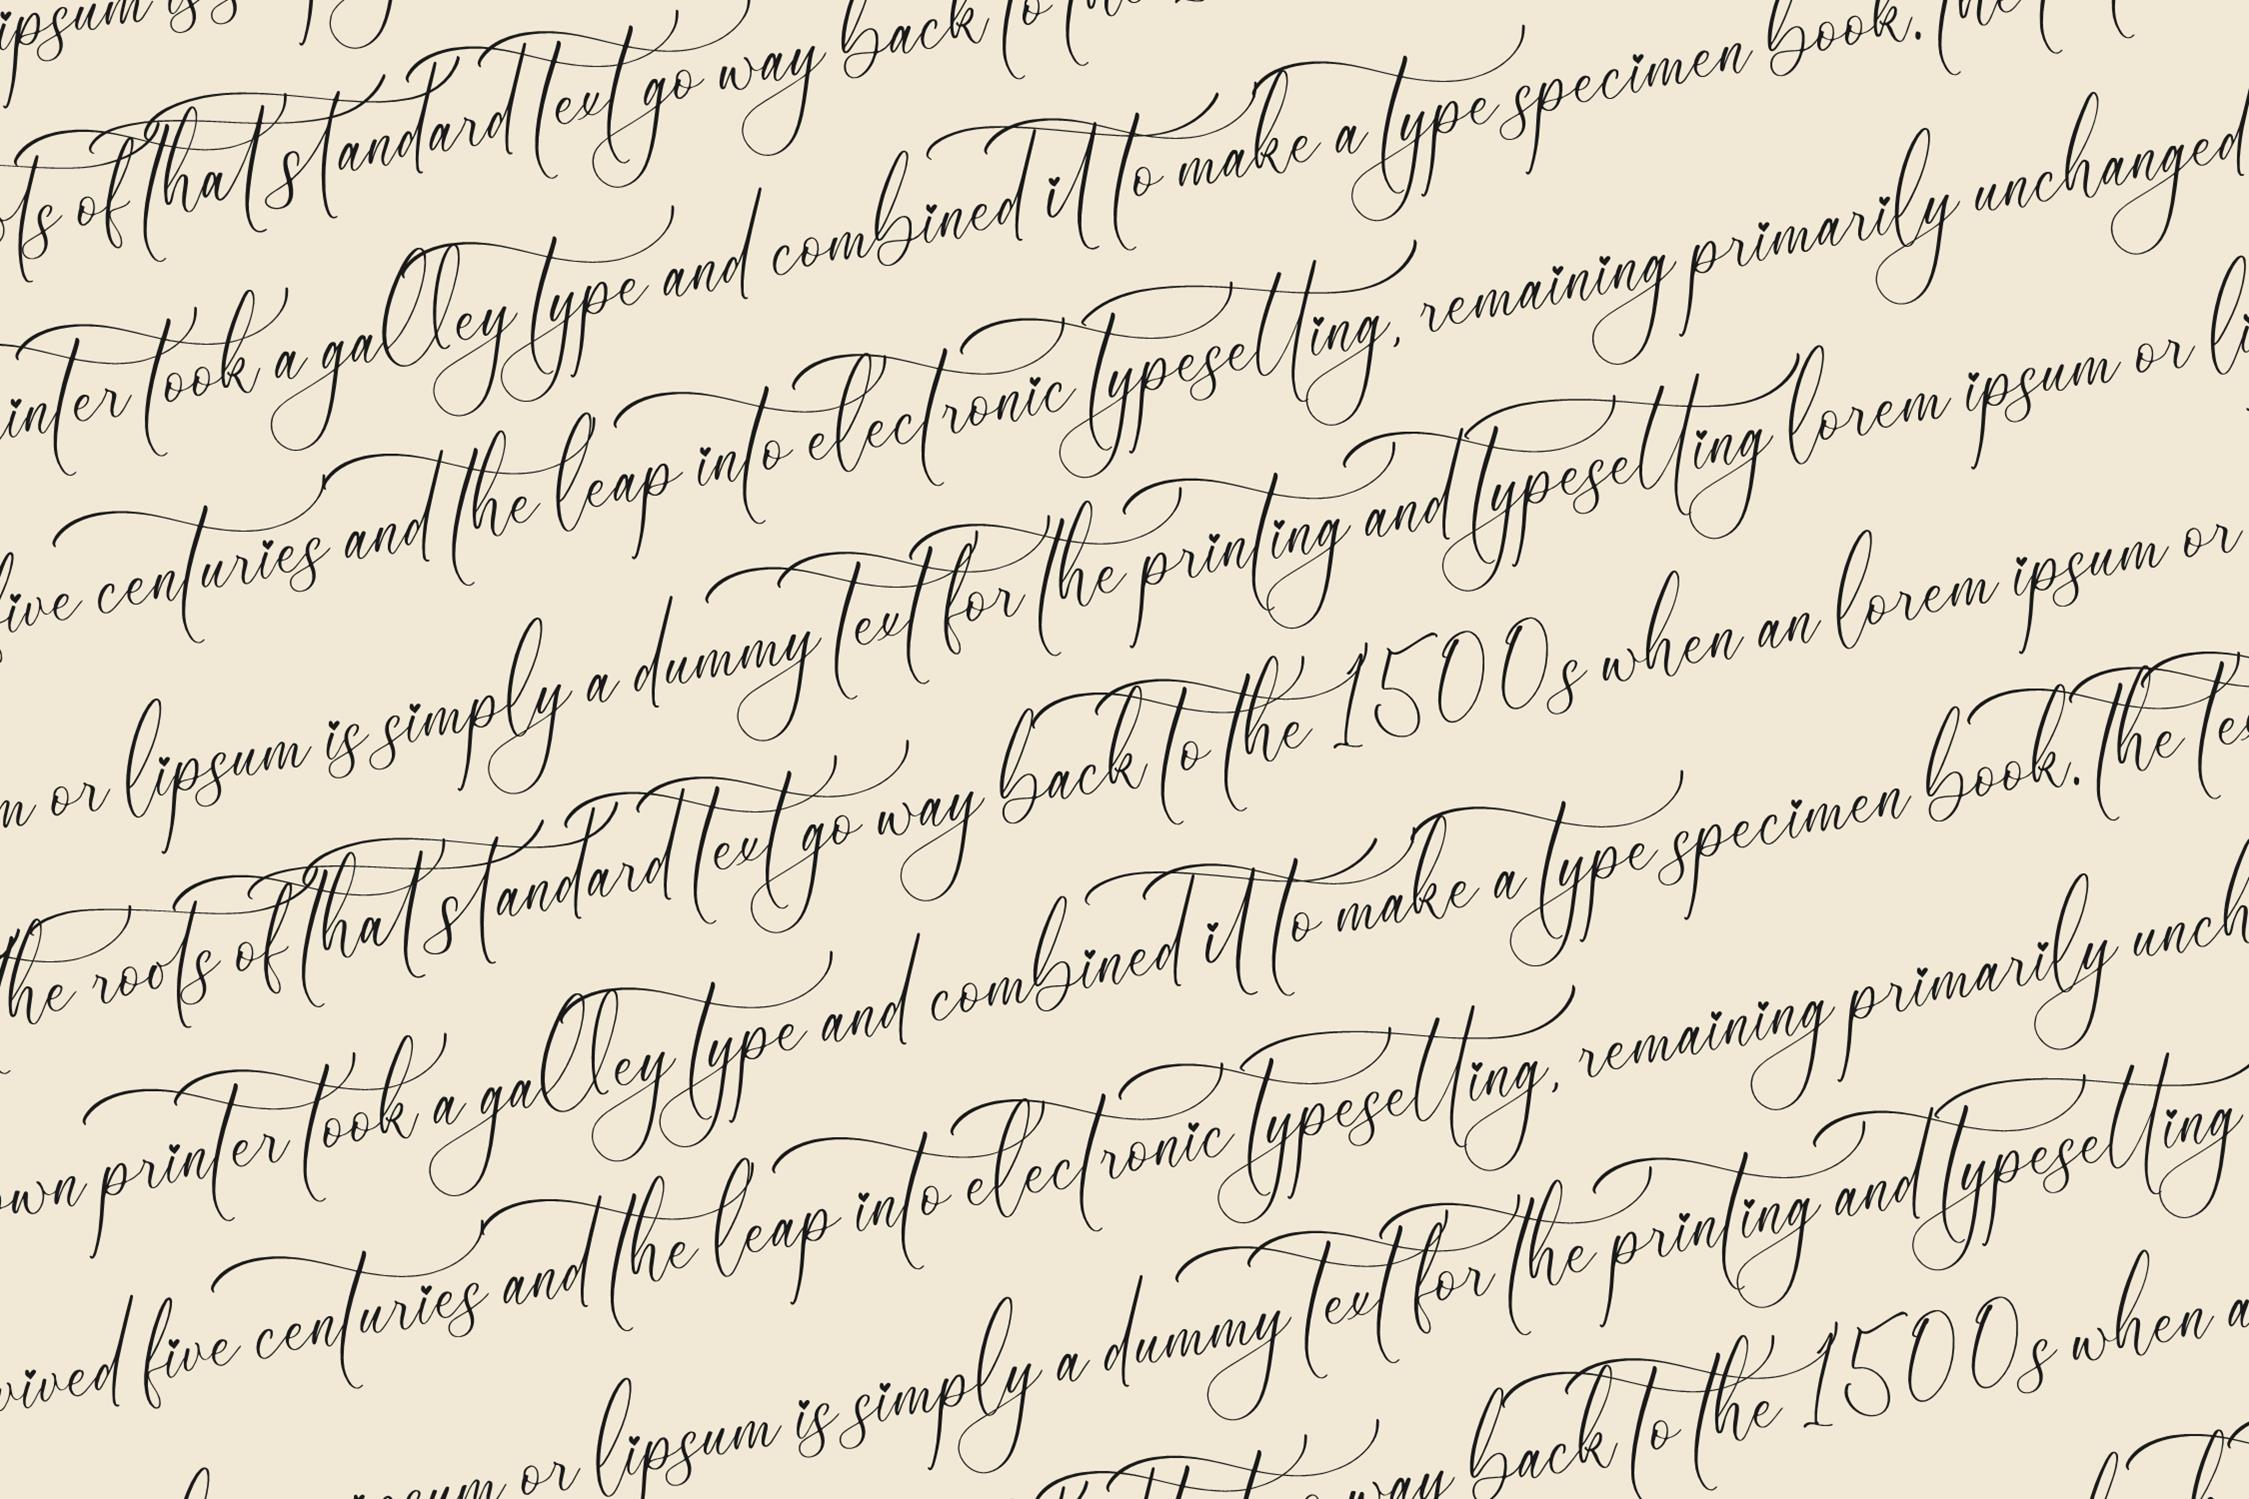 ipsum is
of that standard text go way back to the
took a galley type and combined it to make a type specimen book. the
five centuries and the leap into electronic typesetting, remaining primarily unchanged
or lipsum is simply a dummy text for the printing and typesetting lorem ipsum or
the roots of that standard text go way back to the 1500s when an lorem ipsum or
printer took a galley type and combined it to make a type specimen book. the
five centuries and the leap into electronic typesetting, remaining primarily
or lipsum is simply a dummy text for the printing and typesetting
way back to the 1500s when